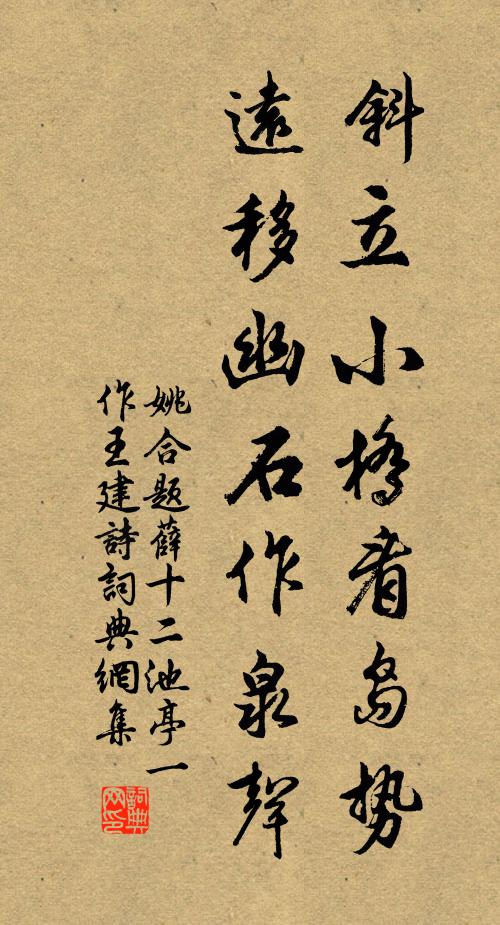 斜立小橋看島勢
遠移幽石作泉聲
姚合題薛十二池亭一
作王建詩詞典網集
詞典網印